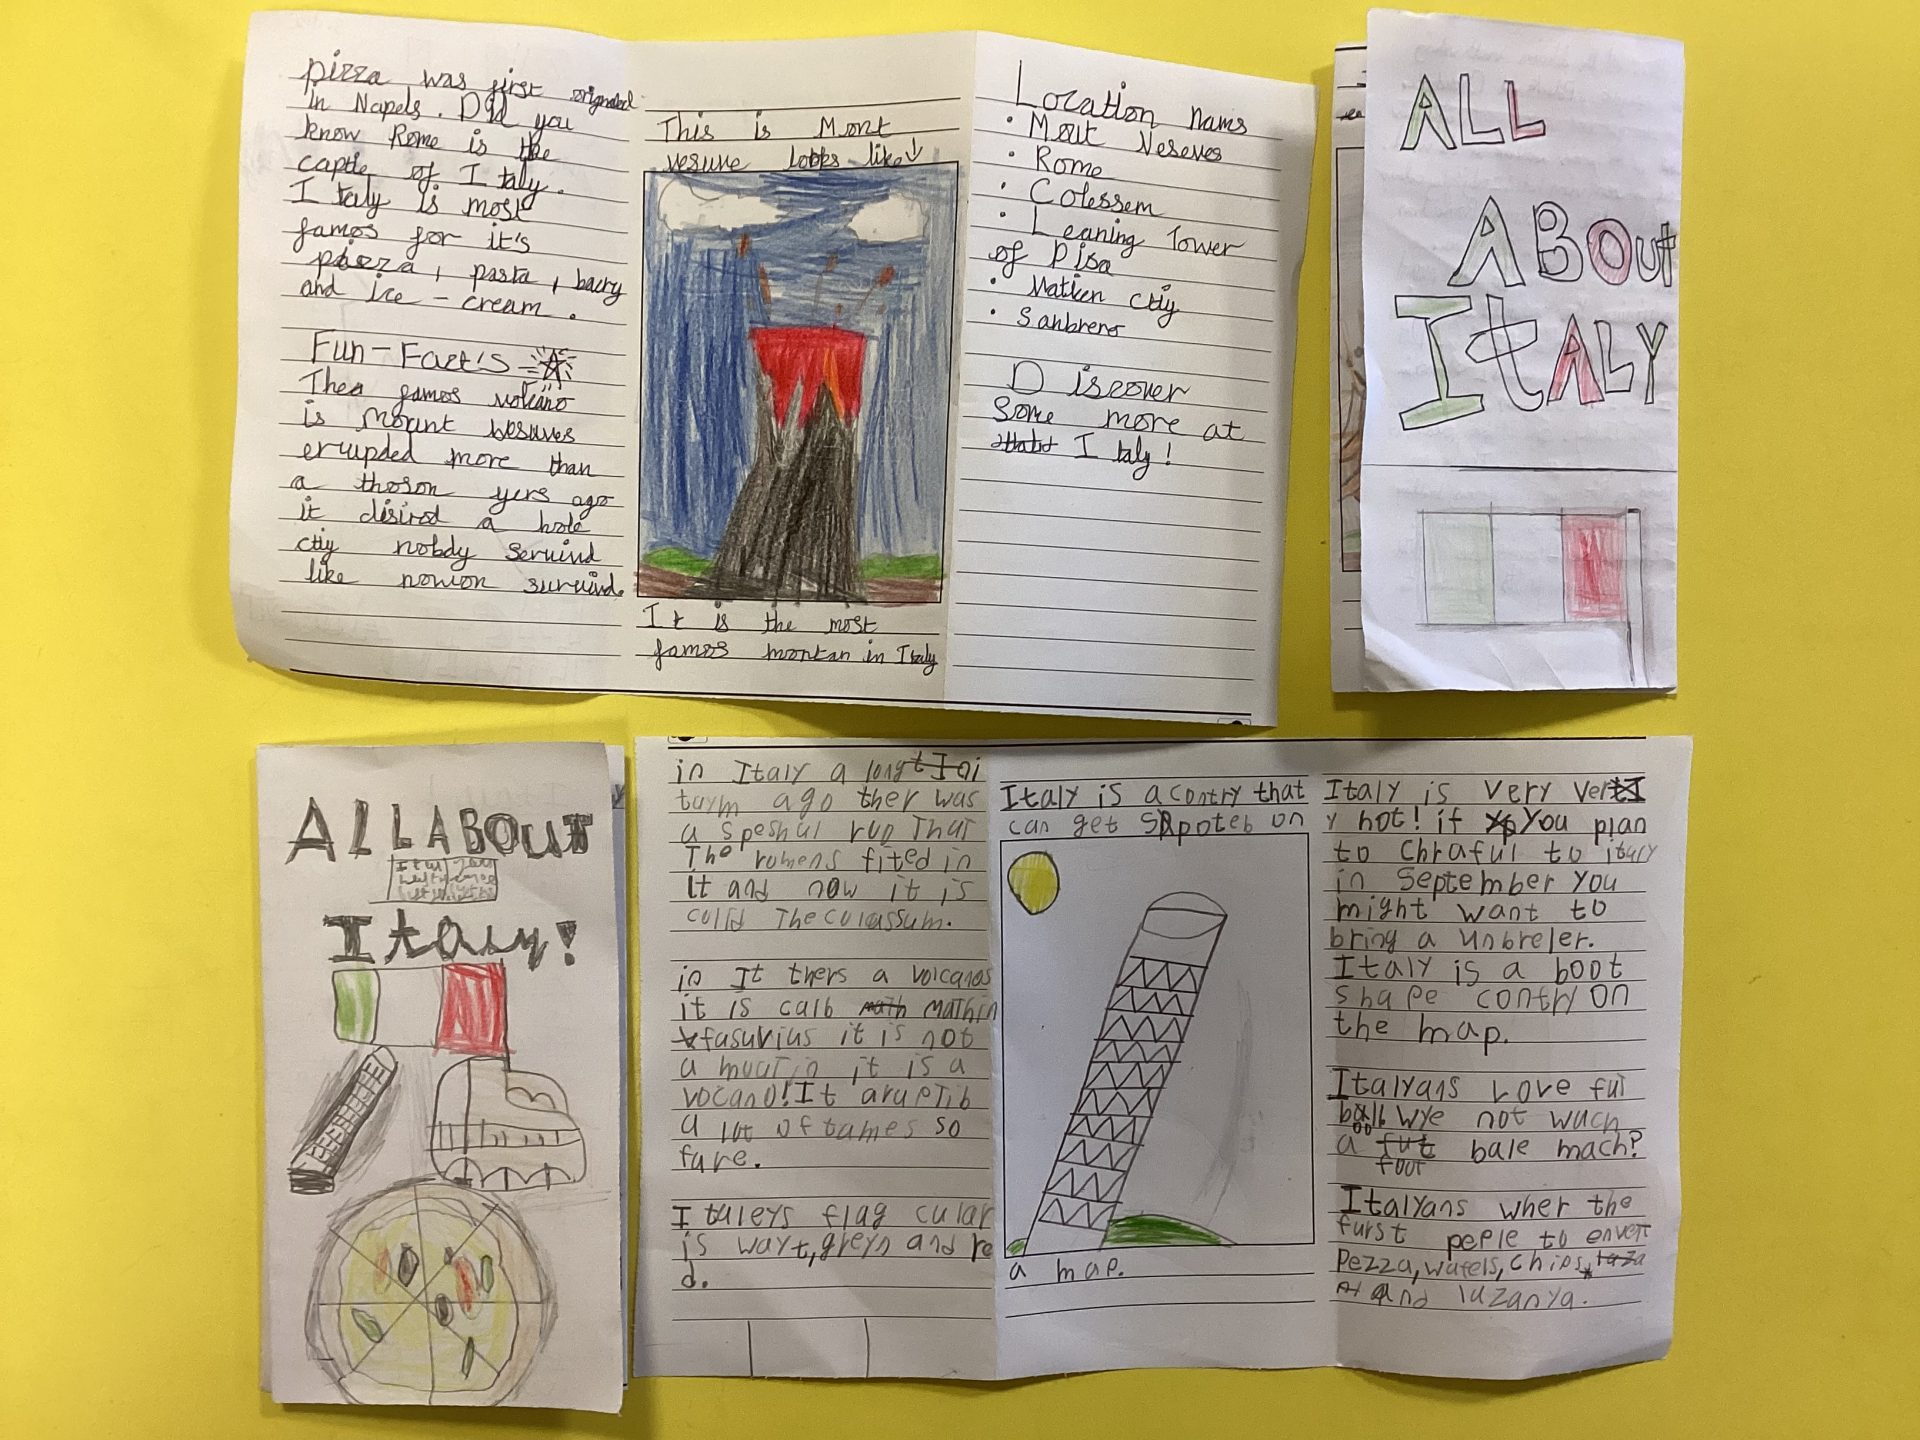 pizza was first orignated
in Napels. Did you
know Rome is the
captie of Italy.
Italy is most
famos for it's
pizza, pasta, bacry
and ice-cream.
Fun-Fact's
Thea famos volcano
is mount besuves
erupded more than
a thoson yers ago
it disired a hole
ctiy nobdy servind
like nowon survind.
This is Mont
vesuve looks like↓
It is the most
famos montan in Italy
Location nams
• Mout Veseves
• Rome
• Colessem
• Leaning Tower
of Pisa
• Vatican ctiy
• Sanbreno
Discover
Some more at
Italy!
ALL
ABOUt
ItALY
ALLABOUt
Italy!
in Italy a long
taym ago ther was
a speshul run That
The romens fited in
It and now it is
colld The colassum.
in It thers a volcanos
it is calb mathin
fasuvius it is not
a muatin it is a
vocano! It arupTib
a lot of tames so
fare.
Italeys flag cular
is wayt, greyn and re
d.
Italy is a contry that
can get spoteb on
a map.
Italy is very ver
y hot! if you plan
to Chraful to itary
in September you
might want to
bring a unbreler.
Italy is a boot
shape contry on
the map.
Italyans Love fut
ball wye not wach
a foot bale mach?
Italyans wher the
furst peple to envent
Pezza, wafels, chips,
and lazanya.